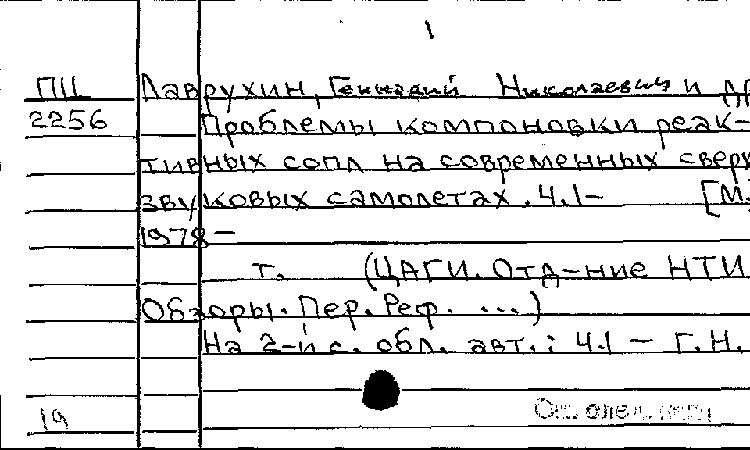 1
ПЦ Лаврухин, Геннадий Николаевич и др
2256 Проблемы компоновки реак-
тивных сопл на современных сверх
звуковых самолетах. Ч.1- [М.
1978-
т. (ЦАГИ. Отд-ние НТИ
Обзоры. Пер. Реф. ...)
На 2-й с. обл. авт.: Ч.1 - Г.Н.
19